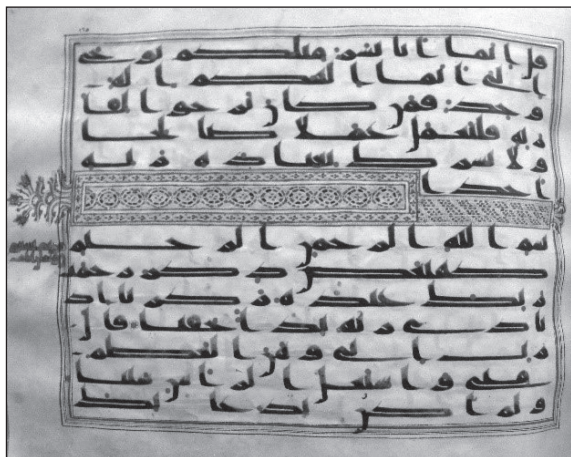 قل ا نما ا نا بشر مثلكم يوحى
ا لي ا نما ا لهكم ا له
و حد فمن كا ن ير جو ا لقا
ر به فليعمل عملا صا لحا
و لا يشر ك بعبا د ه ر به
ا حد ا
بسم ا لله ا لر حمن ا لر حيم
كهيعص ذ كر ر حمت
ر بك عبد ه ز كر يا ا ذ
نا د ى ر به ند ا خفيا قا ل
ر ب ا ني و هن ا لعظم
مني و ا شتعل ا لر ا س شيبا
و لم ا كن بد عا ئك